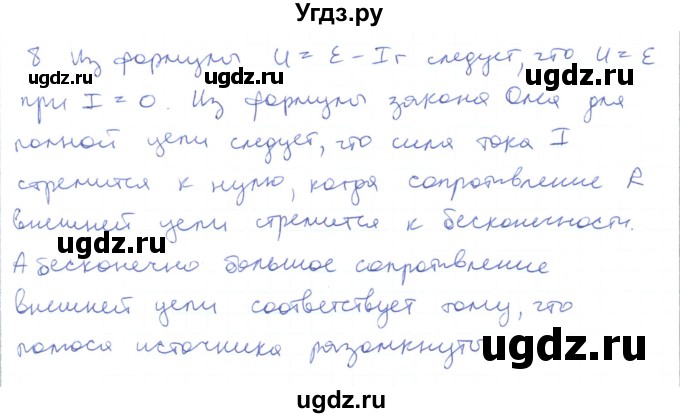 Угдз.ру
8 Из формулы U = ℰ – Ir следует, что U = ℰ
при I = 0. Из формулы закона Ома для
полной цепи следует, что сила тока I
стремится к нулю, когда сопротивление R
внешней цепи стремится к бесконечности.
А бесконечно большое сопротивление
внешней цепи соответствует тому, что
полюса источника разомкнуты
ugdz.ru
ugdz.ru
ugdz.ru
ugdz.ru
ugdz.ru
ugdz.ru
ugdz.ru